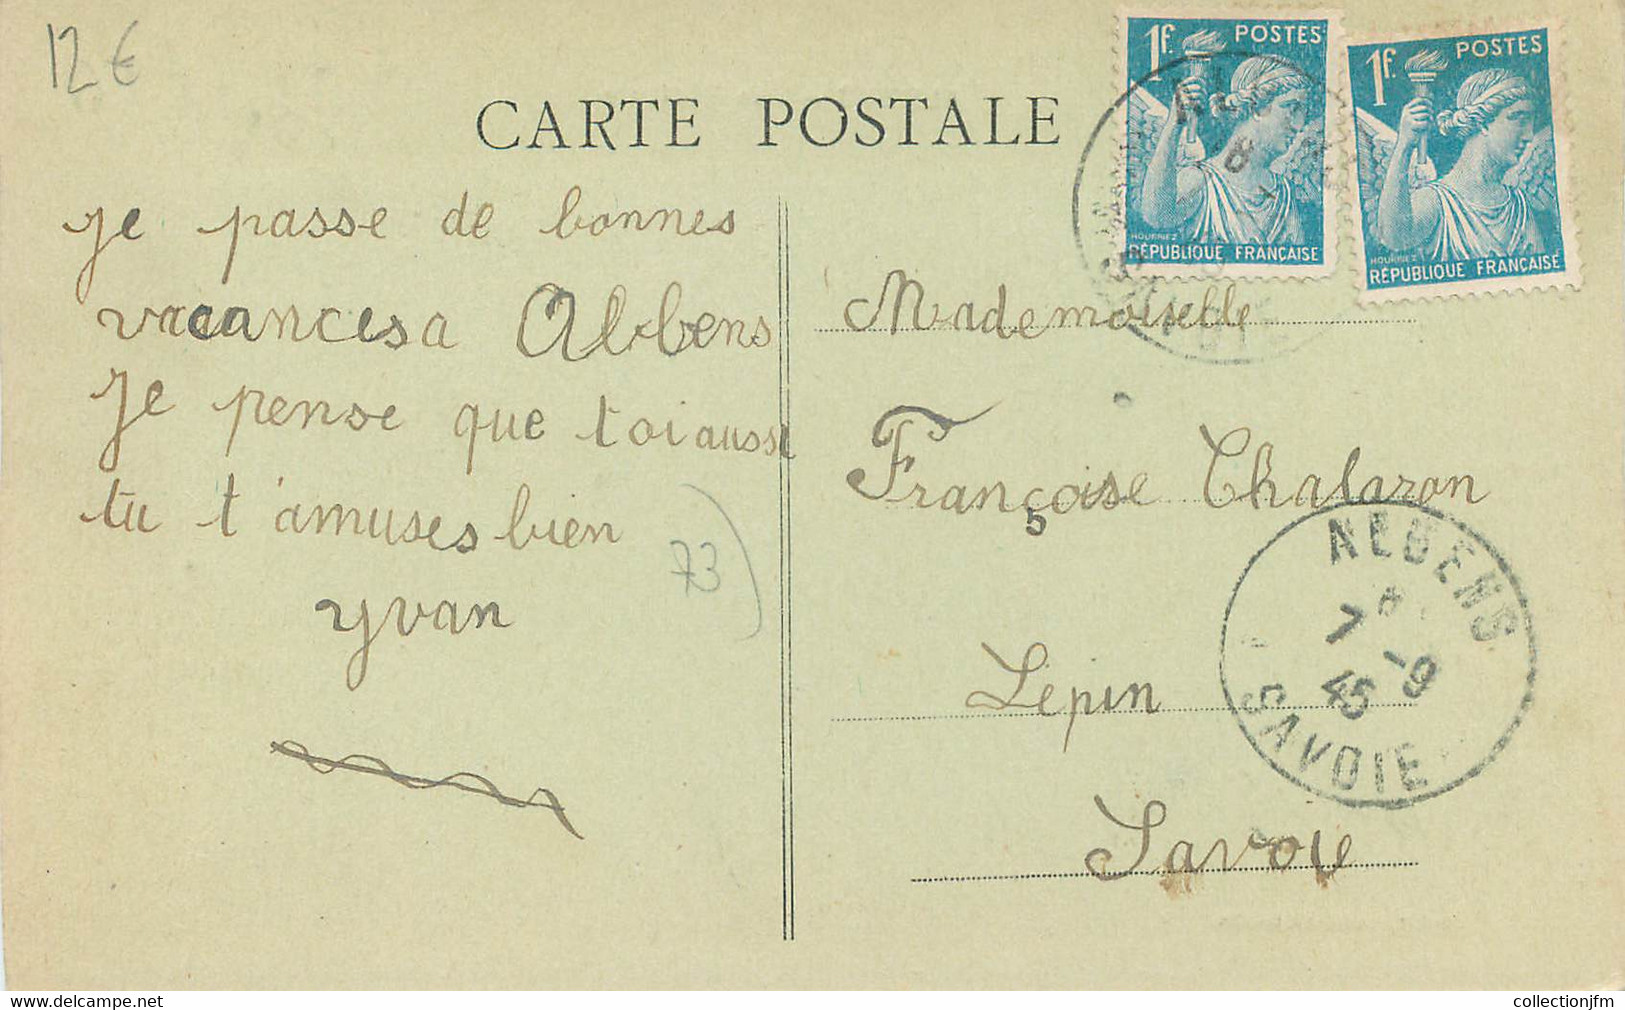 12€
CARTE POSTALE
1F. POSTES
HOURRIEZ
RÉPUBLIQUE FRANÇAISE
1F. POSTES
HOURRIEZ
RÉPUBLIQUE FRANÇAISE
Je passe de bonnes
vacances a Albens
Je pense que toi aussi
tu t'amuses bien
Yvan
73
Mademoiselle
Françoise Chalaron
Lépin
Savoie
ALBENS
7 -9
45
SAVOIE
collectionjfm